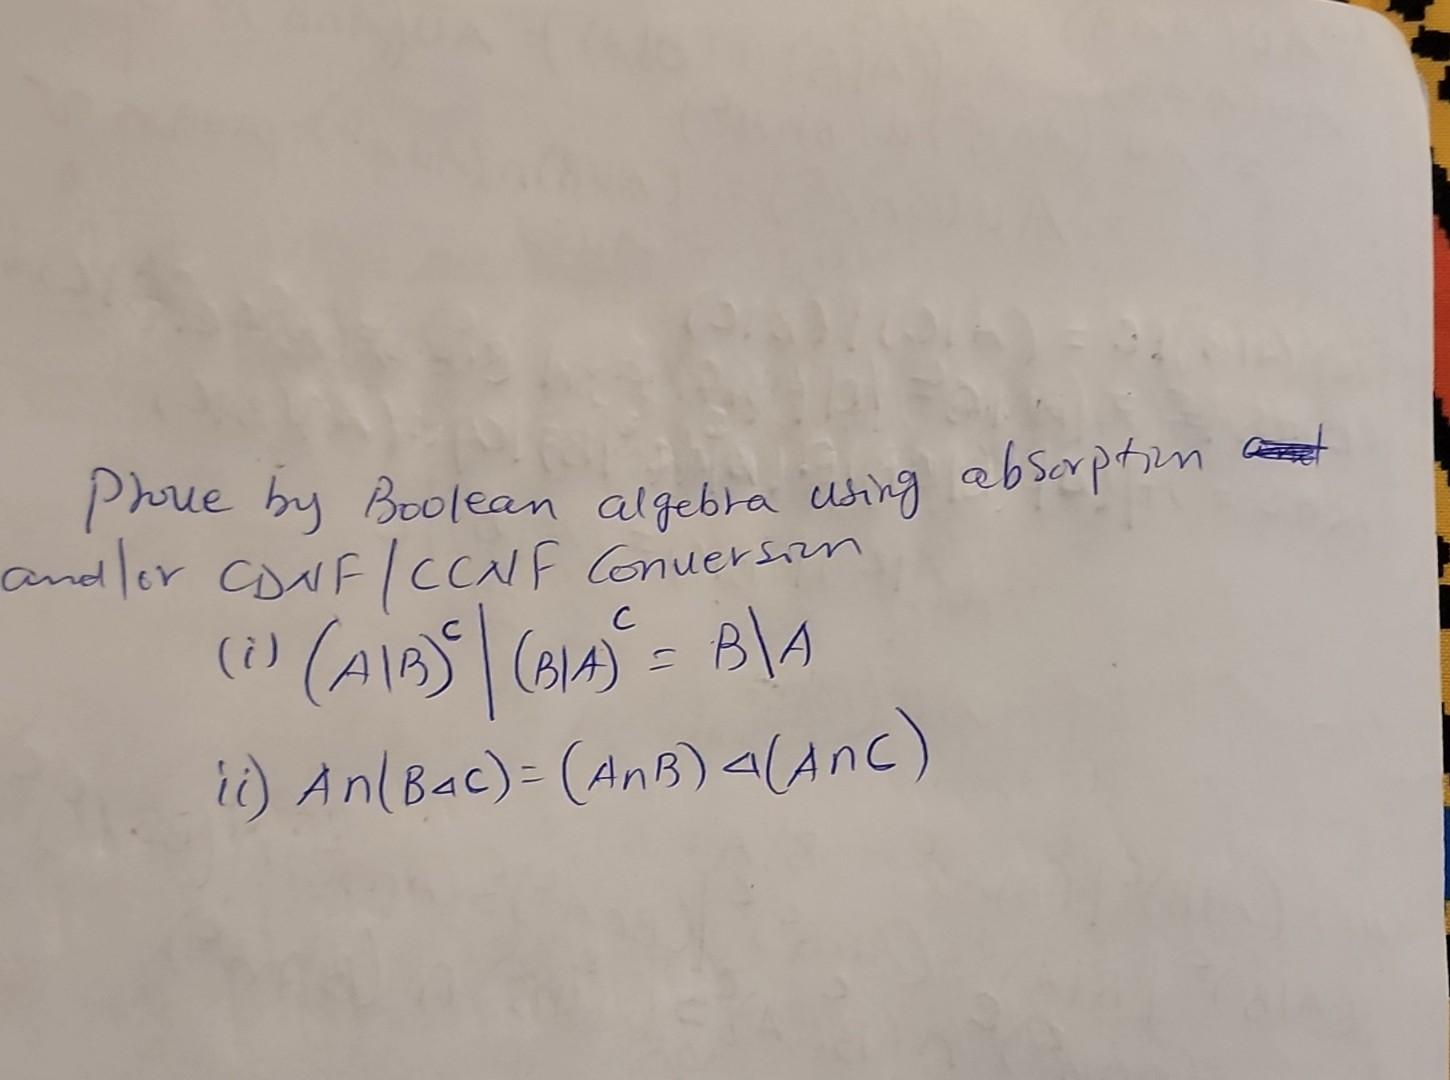 Prove by Boolean algebra using absorption
and/or CDNF/CCNF Conversion
(i) (A|B)ᶜ | (B|A)ᶜ = B\A
ii) A∩(B△C)=(A∩B)△(A∩C)